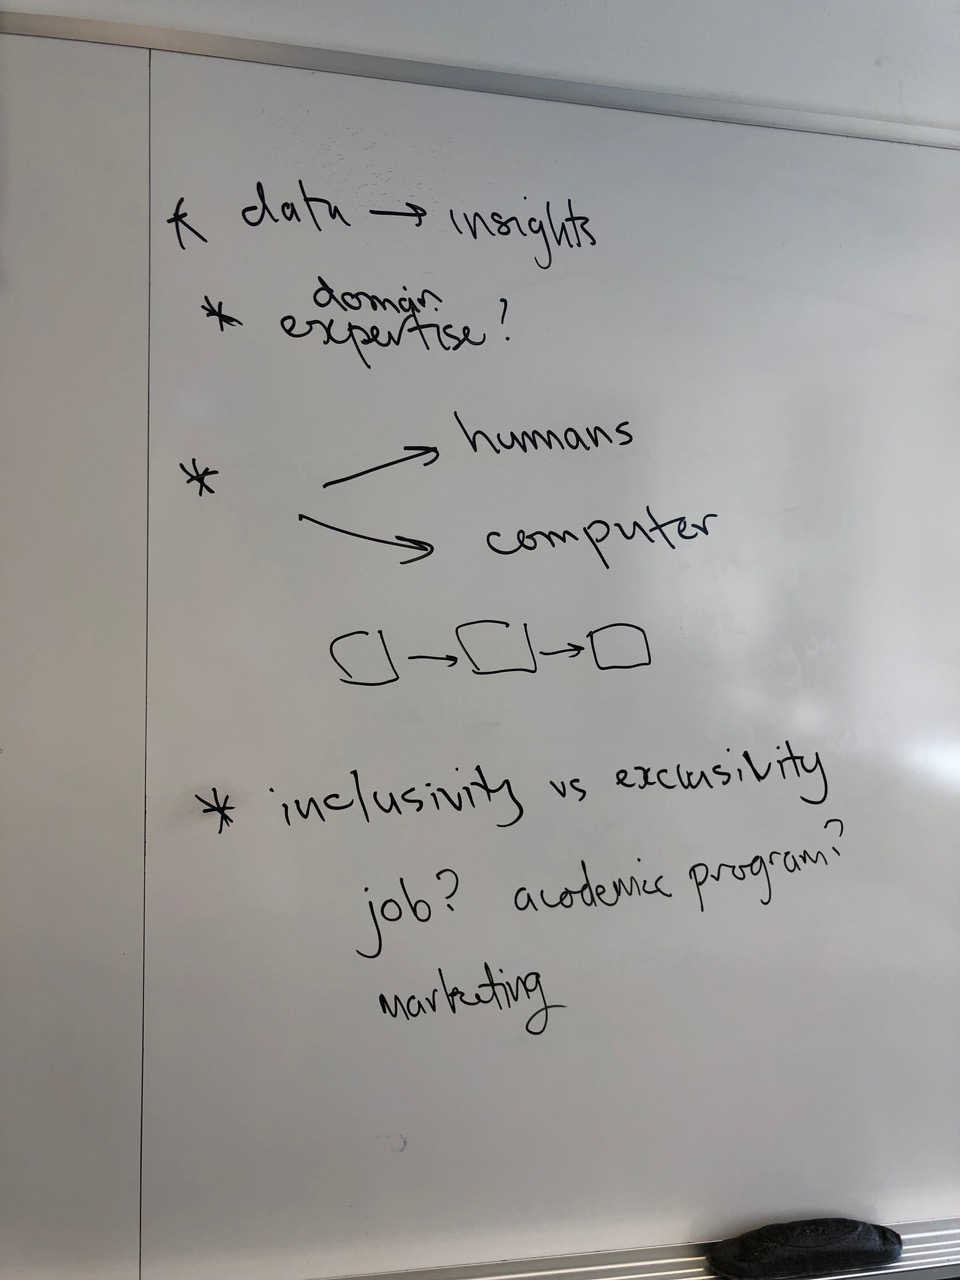 * data → insights
* domain
expertise?
* → humans
→ computer
→ →
* inclusivity vs exclusivity
job? academic program?
marketing